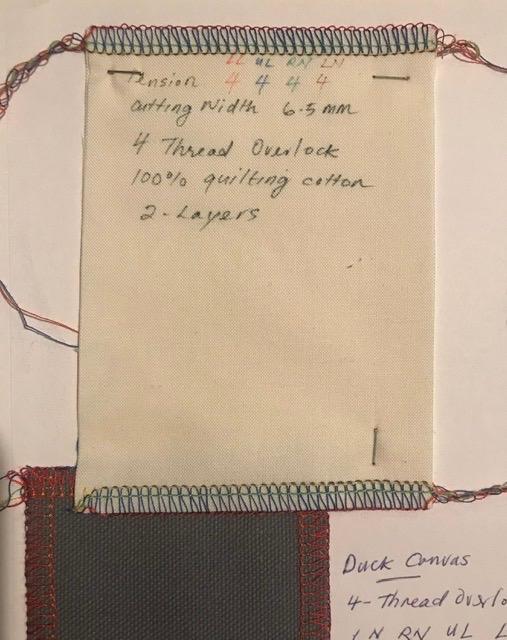 LL UL RN LN
Tension 4 4 4 4
Cutting Width 6.5 mm
4 Thread Overlock
100% quilting cotton
2-Layers
Duck Canvas
4-Thread Overlo
LN RN UL L